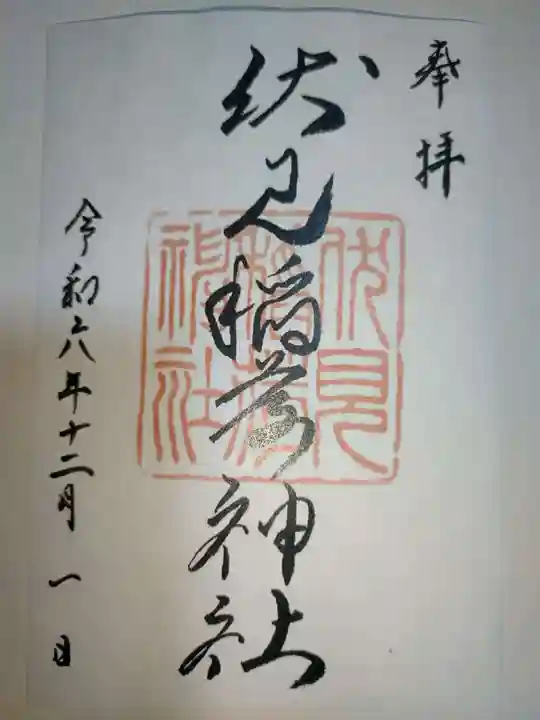 奉拝
伏見稲荷神社
伏見稲荷神社
令和六年十二月一日